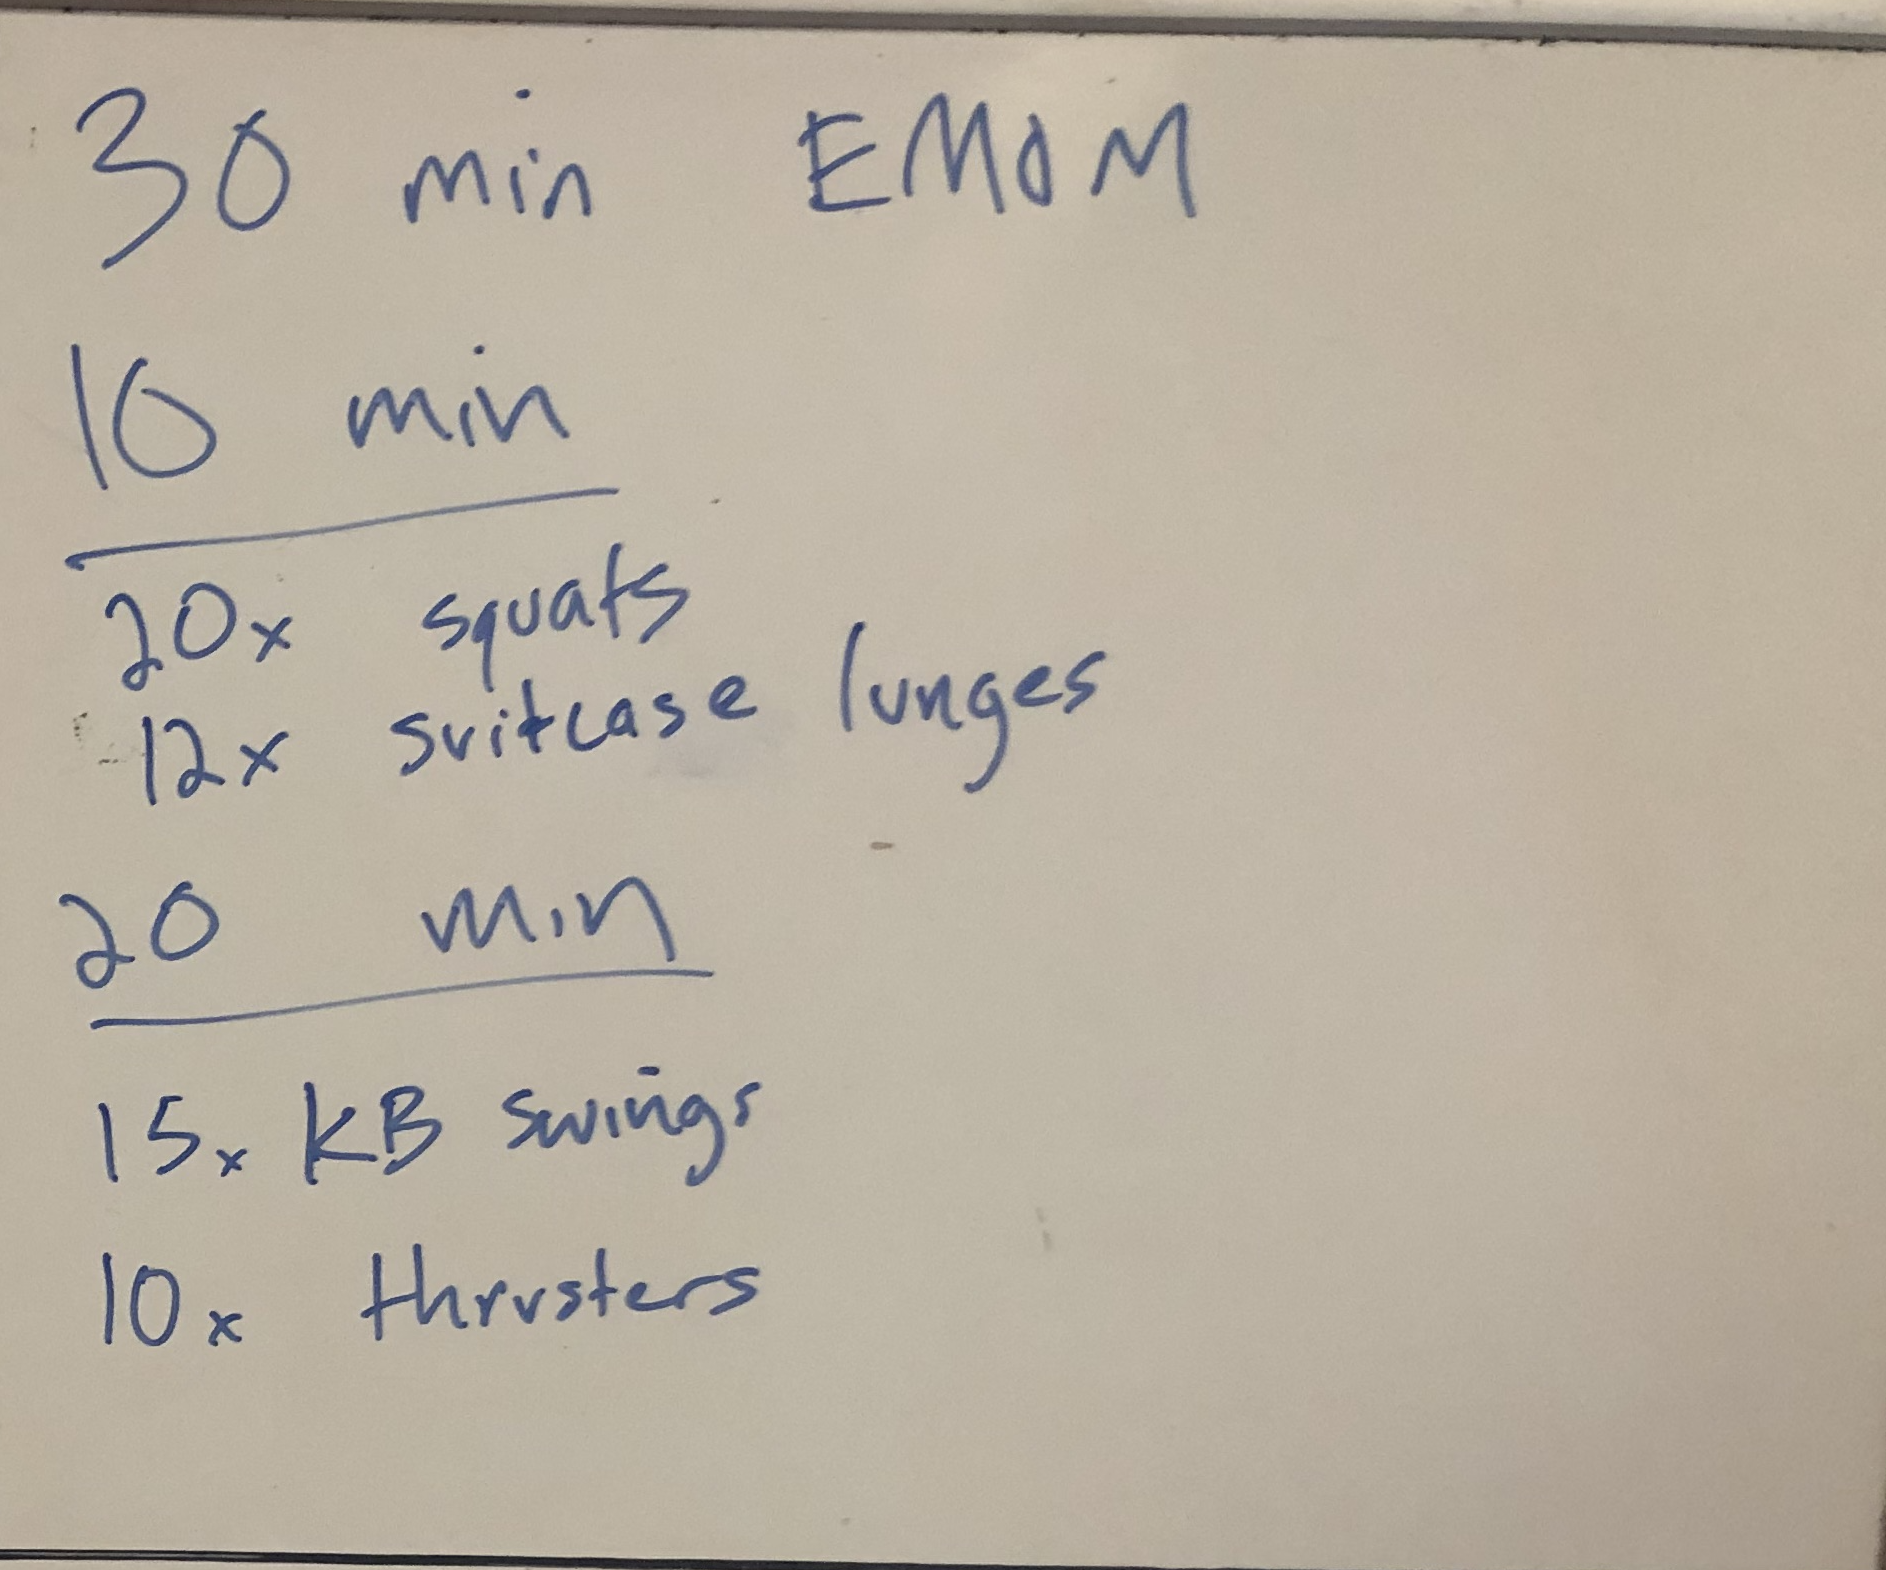 30 min EMOM
10 min
20x squats
12x suitcase lunges
20 min
15x KB swings
10x thrusters